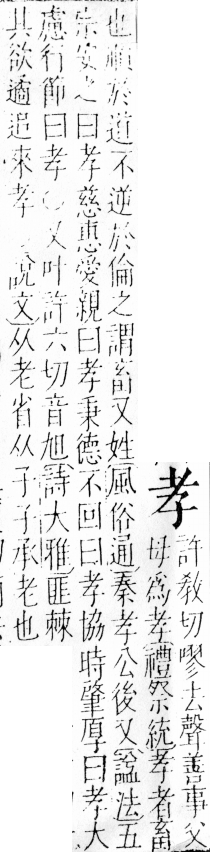 孝
許教切嘐去聲善事父
母爲孝禮祭統孝者畜
也順於道不逆於倫之謂畜又姓風俗通秦孝公後又諡法五
宗安之曰孝慈惠愛親曰孝秉德不回曰孝協時肇厚曰孝大
慮行節曰孝○又叶許六切音旭詩大雅匪棘
其欲遹追來孝 說文从老省从子子承老也